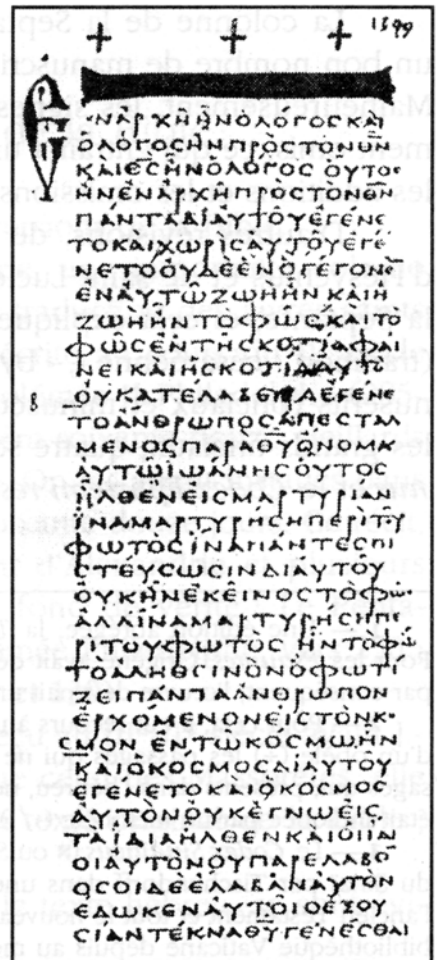 1349
ΕΝΑΡΧΗΗΝΟΛΟΓΟϹΚΑΙ
ΟΛΟΓΟϹΗΝΠΡΟϹΤΟΝΘΝ
ΚΑΙΘϹΗΝΟΛΟΓΟϹΟΥΤΟϹ
ΗΝΕΝΑΡΧΗΠΡΟϹΤΟΝΘΝ
ΠΑΝΤΑΔΙΑΥΤΟΥΕΓΕΝΕ
ΤΟΚΑΙΧΩΡΙϹΑΥΤΟΥΕΓΕ
ΝΕΤΟΟΥΔΕΕΝΟΓΕΓΟΝΕ
ΕΝΑΥΤΩΖΩΗΗΝΚΑΙΗ
ΖΩΗΗΝΤΟΦΩϹΚΑΙΤΟ
ΦΩϹΕΝΤΗϹΚΟΤΙΑΦΑΙ
ΝΕΙΚΑΙΗϹΚΟΤΙΑΑΥΤΟ
ΟΥΚΑΤΕΛΑΒΕΝΕΓΕΝΕ
ΤΟΑΝΘΡΩΠΟϹΑΠΕϹΤΑΛ
ΜΕΝΟϹΠΑΡΑΘΥΟΝΟΜΑ
ΑΥΤΩΙΩΑΝΗϹΟΥΤΟϹ
ΗΛΘΕΝΕΙϹΜΑΡΤΥΡΙΑΝ
ΙΝΑΜΑΡΤΥΡΗϹΗΠΕΡΙΤΟΥ
ΦΩΤΟϹΙΝΑΠΑΝΤΕϹΠΙ
ϹΤΕΥϹΩϹΙΝΔΙΑΥΤΟΥ
ΟΥΚΗΝΕΚΕΙΝΟϹΤΟΦΩϹ
ΑΛΛΙΝΑΜΑΡΤΥΡΗϹΗΠΕ
ΡΙΤΟΥΦΩΤΟϹΗΝΤΟΦΩϹ
ΤΟΑΛΗΘΙΝΟΝΟΦΩΤΙ
ΖΕΙΠΑΝΤΑΑΝΘΡΩΠΟΝ
ΕΡΧΟΜΕΝΟΝΕΙϹΤΟΝΚΟ
ϹΜΟΝΕΝΤΩΚΟϹΜΩΗΝ
ΚΑΙΟΚΟϹΜΟϹΔΙΑΥΤΟΥ
ΕΓΕΝΕΤΟΚΑΙΟΚΟϹΜΟϹ
ΑΥΤΟΝΟΥΚΕΓΝΩΕΙϹ
ΤΑΙΔΙΑΗΛΘΕΝΚΑΙΟΙΙΔΙ
ΟΙΑΥΤΟΝΟΥΠΑΡΕΛΑΒΟ
ΟϹΟΙΔΕΕΛΑΒΑΝΑΥΤΟΝ
ΕΔΩΚΕΝΑΥΤΟΙϹΕΞΟΥ
ϹΙΑΝΤΕΚΝΑΘΥΓΕΝΕϹΘΑΙ